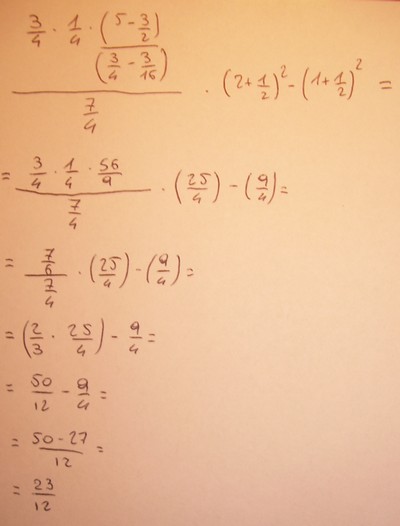 \frac{\frac{3}{4} \cdot \frac{1}{4} \cdot \frac{(5 - \frac{3}{2})}{(\frac{3}{4} - \frac{3}{16})}}{\frac{7}{4}} \cdot (2 + \frac{1}{2})^2 - (1 + \frac{1}{2})^2 =
= \frac{\frac{3}{4} \cdot \frac{1}{4} \cdot \frac{56}{9}}{\frac{7}{4}} \cdot (\frac{25}{4}) - (\frac{9}{4}) =
= \frac{\frac{7}{6}}{\frac{7}{4}} \cdot (\frac{25}{4}) - (\frac{9}{4}) =
= (\frac{2}{3} \cdot \frac{25}{4}) - \frac{9}{4} =
= \frac{50}{12} - \frac{9}{4} =
= \frac{50 - 27}{12} =
= \frac{23}{12}